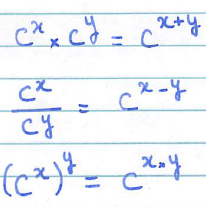 c^x × c^y = c^{x+y}
c^x / c^y = c^{x-y}
(c^x)^y = c^{x×y}